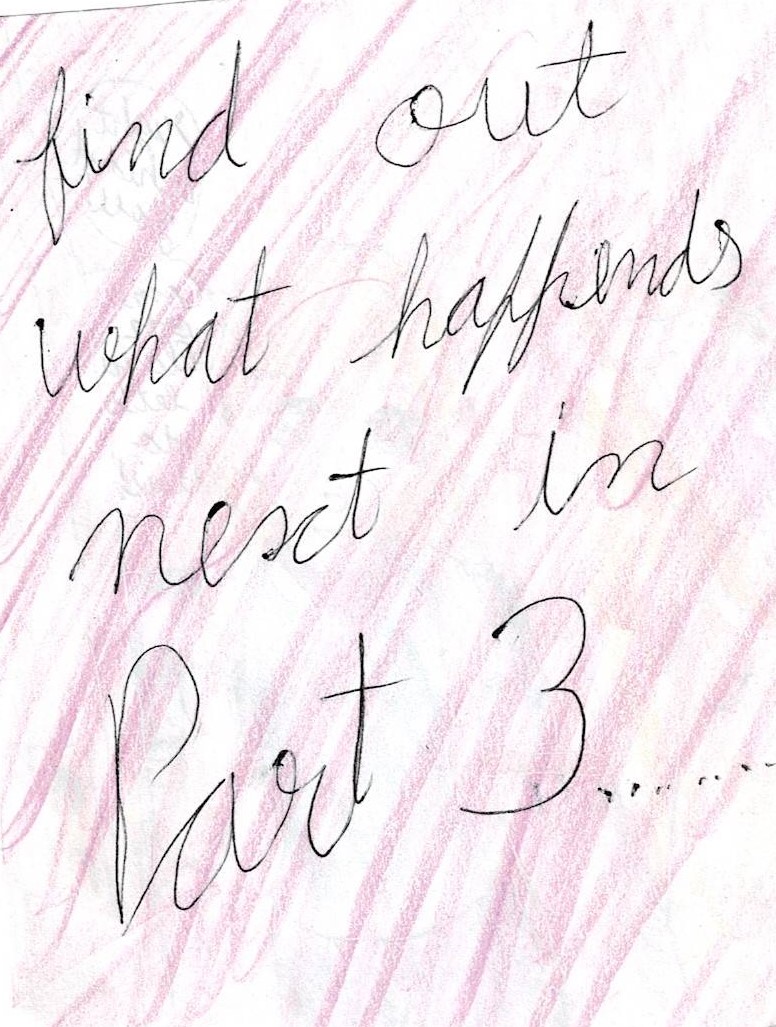 find out
what happends
next in
Part 3........